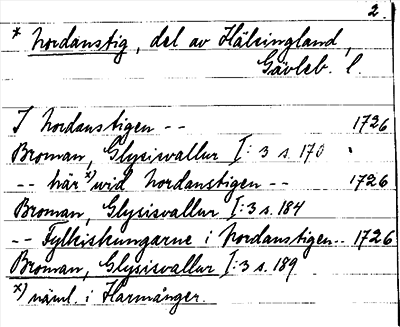 2.
* Nordanstig, del av Hälsingland,
Gävleb. l.
I Nordanstigen -- 1726
Broman, Glysisvallur I: 3 s. 170
-- här x) wid Nordanstigen -- 1726
Broman, Glysisvallur I: 3 s. 184
-- Fylkiskungarne i Nordanstigen -- 1726
Broman, Glysisvallur I: 3 s. 189
x) näml. i Harmånger.